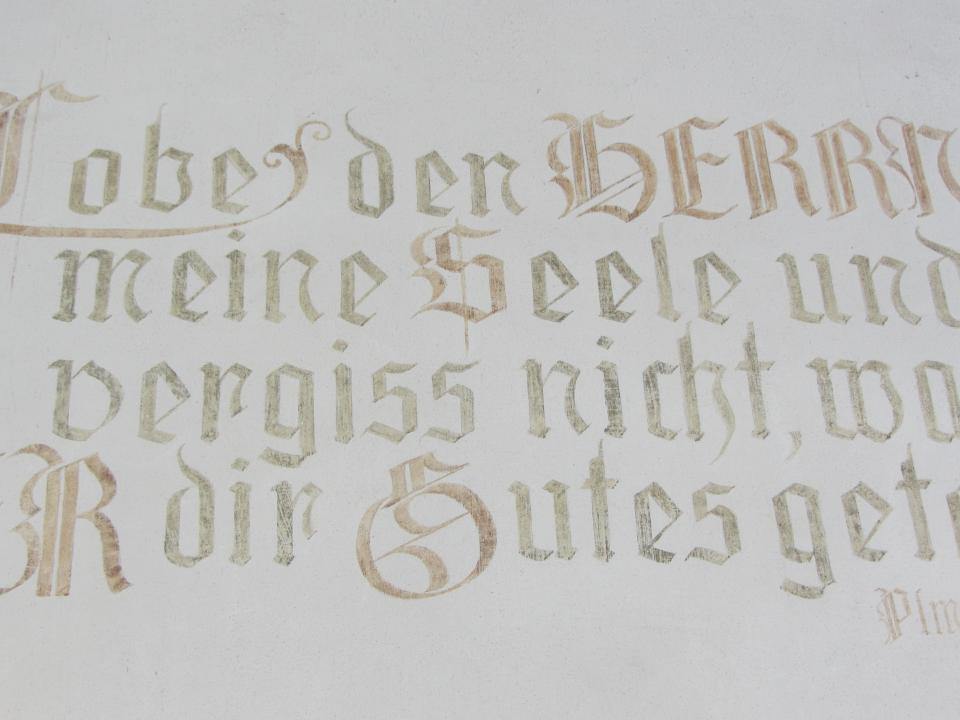 Lobe den HERRN
meine Seele und
vergiss nicht, wa
ER dir Gutes gete
Plm